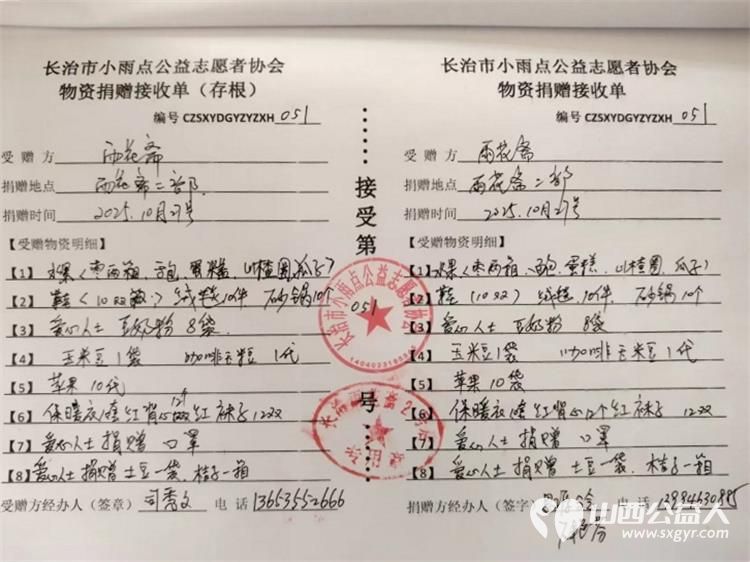 长治市小雨点公益志愿者协会
物资捐赠接收单（存根）
编号 CZSXYDGYZYZXH 051
受 赠 方 雨花斋
捐赠地点 雨花斋二部
捐赠时间 2025.10月27号
【受赠物资明细】
【1】水果（枣两箱、面包、蛋糕、山楂圈、瓜子）
【2】鞋（10双） 绒毯10件 砂锅10个
【3】爱心人士 豆奶粉 8袋
【4】玉米豆1袋 咖啡豆 1代
【5】苹果10代
【6】保暖衣 红背心12个 红袜子12双
【7】爱心人士捐赠 口罩
【8】爱心人士捐赠 土豆一袋、桔子一箱
受赠方经办人（签章）司秀文 电话 13653552666
接受第
051
号
长治市小雨点公益志愿者协会
专用章
长治市小雨点公益志愿者协会
物资捐赠接收单
编号 CZSXYDGYZYZXH 051
受 赠 方 雨花斋
捐赠地点 雨花斋二部
捐赠时间 2025.10月27号
【受赠物资明细】
【1】水果（枣两箱、面包、蛋糕、山楂圈、瓜子）
【2】鞋（10双） 绒毯10件 砂锅10个
【3】爱心人士 豆奶粉 8袋
【4】玉米豆1袋 咖啡 1代
【5】苹果10袋
【6】保暖衣 红背心12个 红袜子12双
【7】爱心人士 捐赠 口罩
【8】爱心人士捐赠 土豆一袋、桔子一箱
捐赠方经办人（签字） 电话 13884630885
山西公益人
www.sxgyr.cn